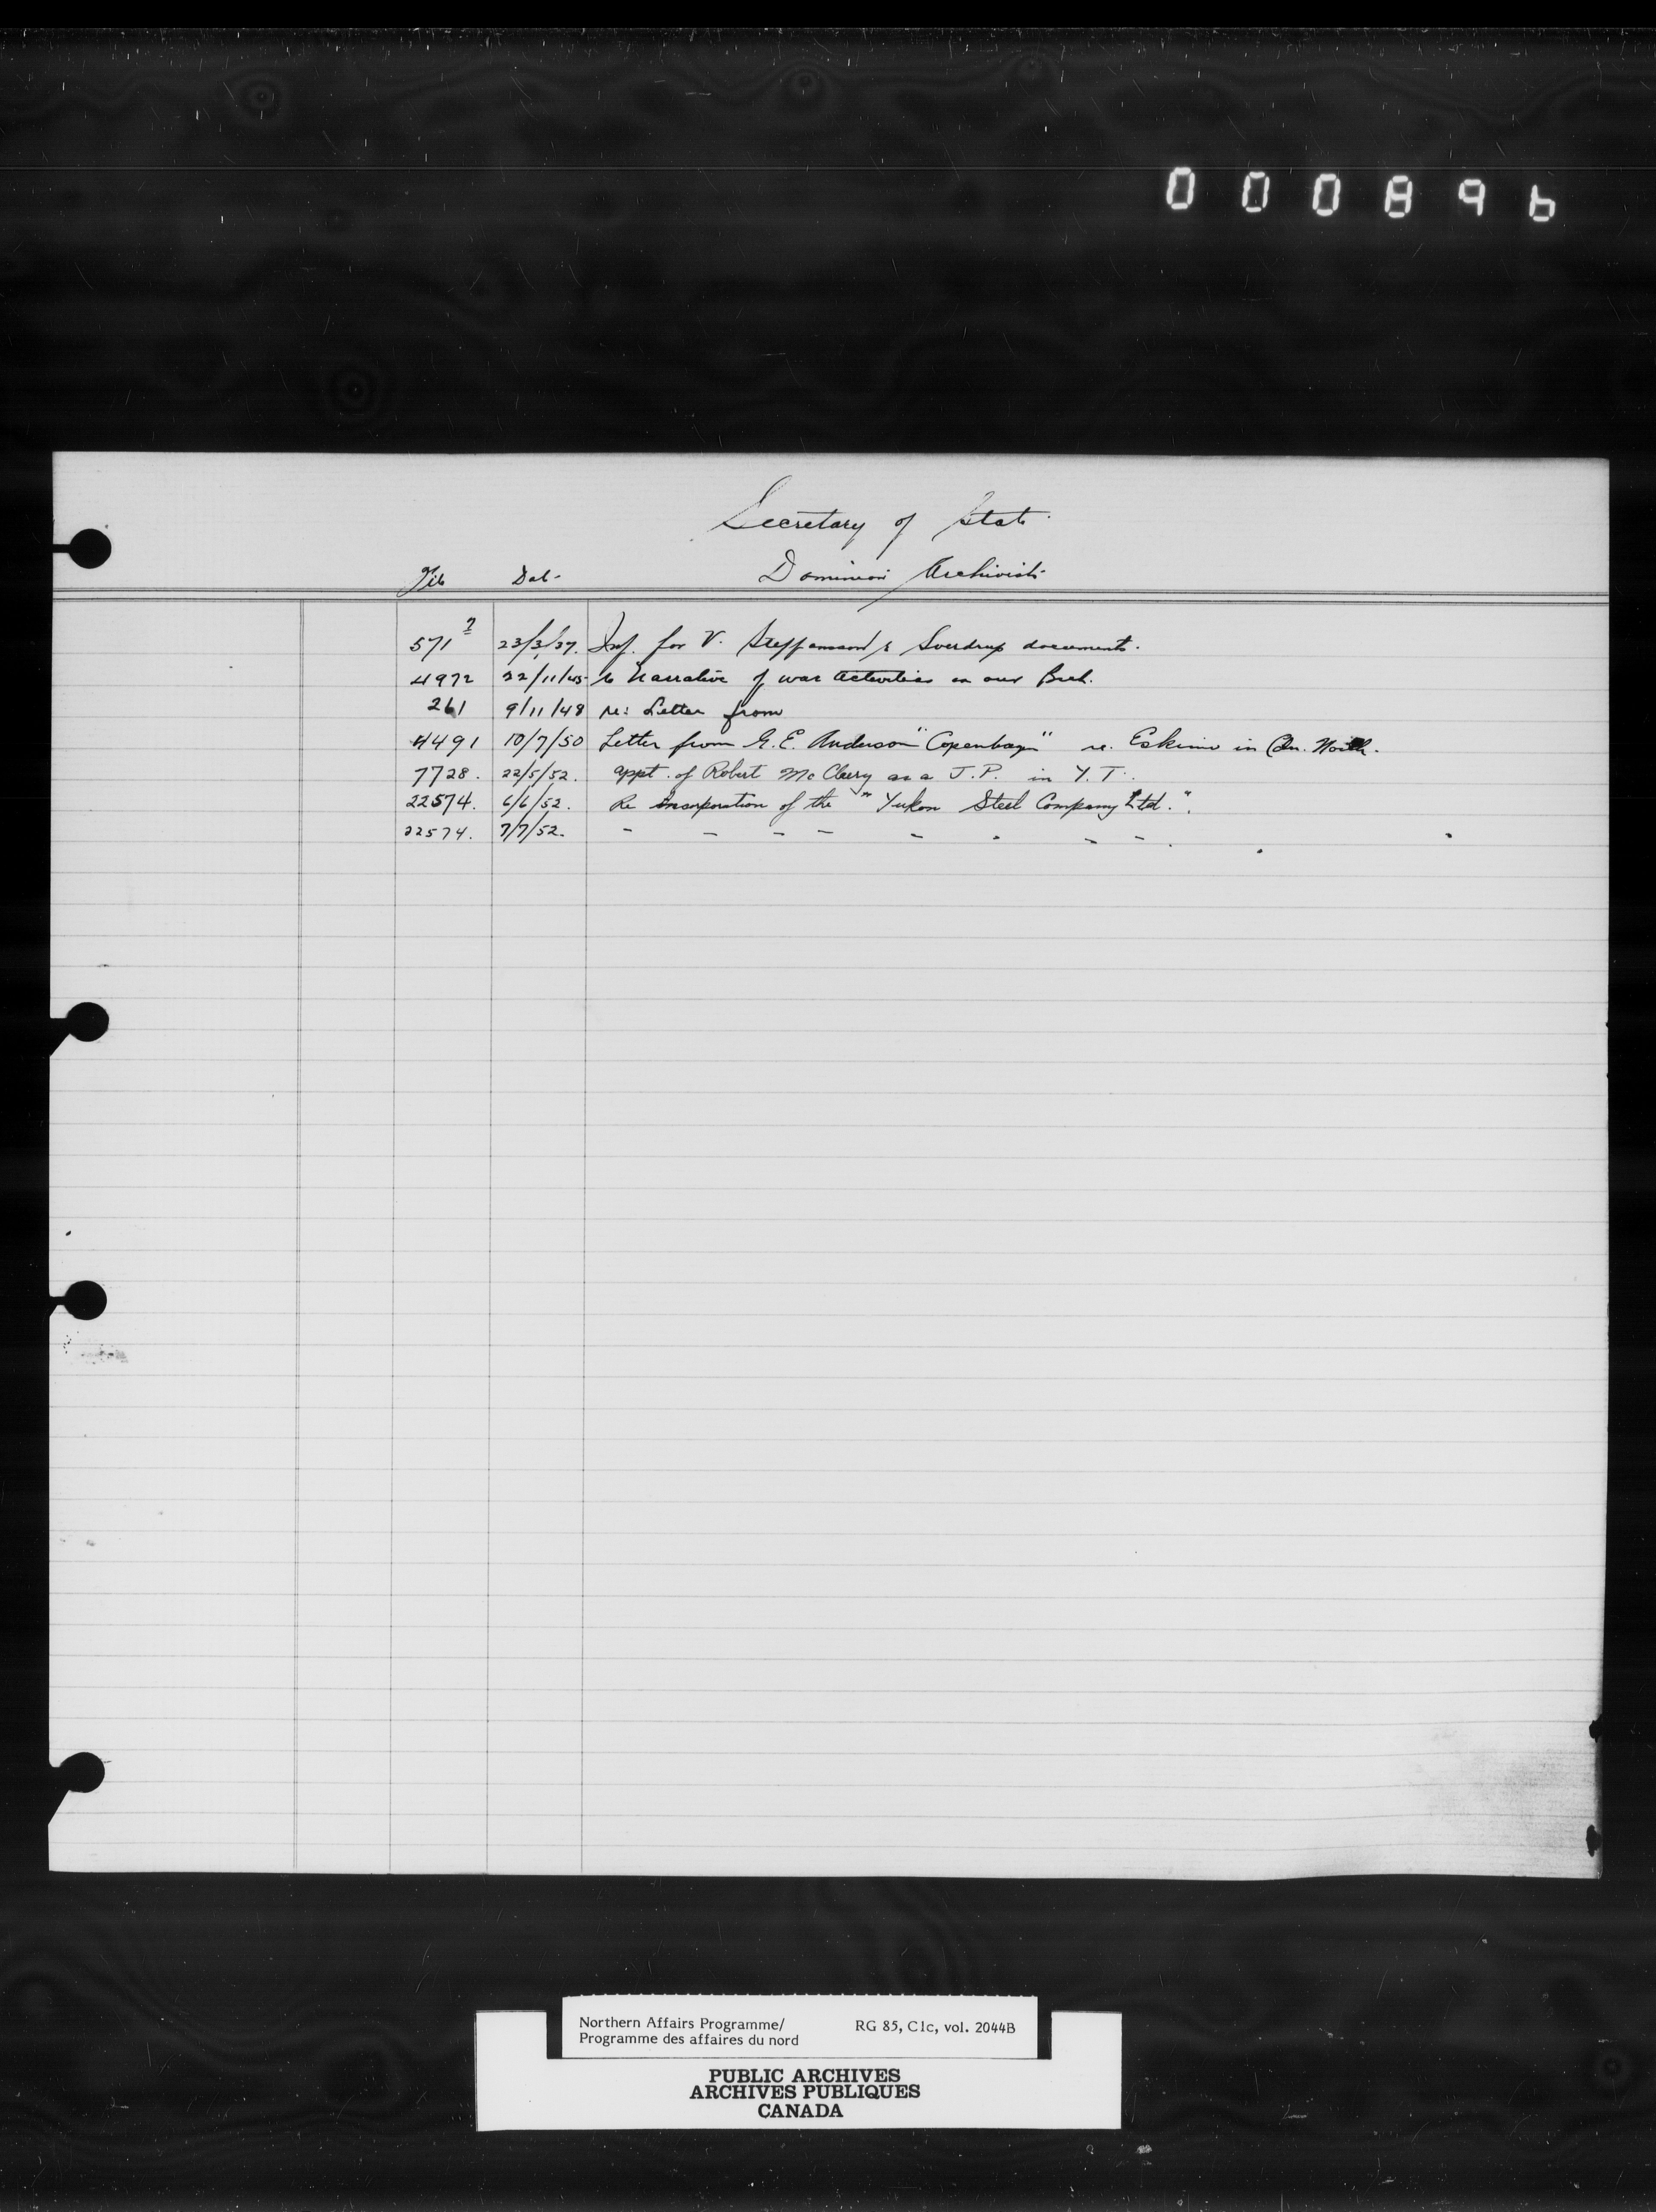 000896
Secretary of State
File Date Dominion Archivist
571 2 23/3/37. Inf. for V. Steffansson re Sverdrup documents.
4972 22/11/45 re Narrative of war activities on our Bch.
261 9/11/48 re: Letter from
4491 10/7/50 Letter from G. E. Anderson "Copenhagen" re. Eskimo in Cdn. North.
7728. 22/5/52. Appt. of Robert McCleery as a J.P. in Y.T.
22574. 6/6/52. Re incorporation of the "Yukon Steel Company Ltd."
22574. 7/7/52. - - - - - - - -
Northern Affairs Programme/ RG 85, C1c, vol. 2044B
Programme des affaires du nord
PUBLIC ARCHIVES
ARCHIVES PUBLIQUES
CANADA